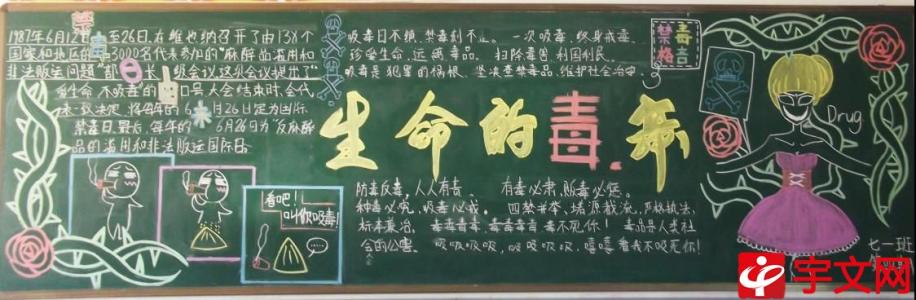 禁毒
1987年6月12日至26日,在维也纳召开了由138个
国家和地区的3000名代表参加的"麻醉品滥用和
非法贩运问题"部长级会议,这次会议提出了"
爱生命,不吸毒的口号,大会结束时,会代
表一致决定,将每年的6月26日定为国际
禁毒日,最后,每年的6月26日为"反麻醉
品的滥用和非法贩运国际日。
吸毒日不绝,禁毒刻不止。 一次吸毒,终身戒毒,
珍爱生命,远离毒品。 扫除毒害,利国利民。
吸毒是犯罪的祸根,坚决查禁毒品,维护社会治安。
禁毒
格言
生命的毒
Drug
防毒反毒,人人有责。 有毒必肃,贩毒必惩。
种毒必究,吸毒必戒。 四禁并举,堵源截流,严格执法,
标本兼治,
毒不死你!毒品是人类社
会的公害,
吸吸吸吸,
看我不吸死你!
看吧!
叫你吸毒!
七一班
宇文网